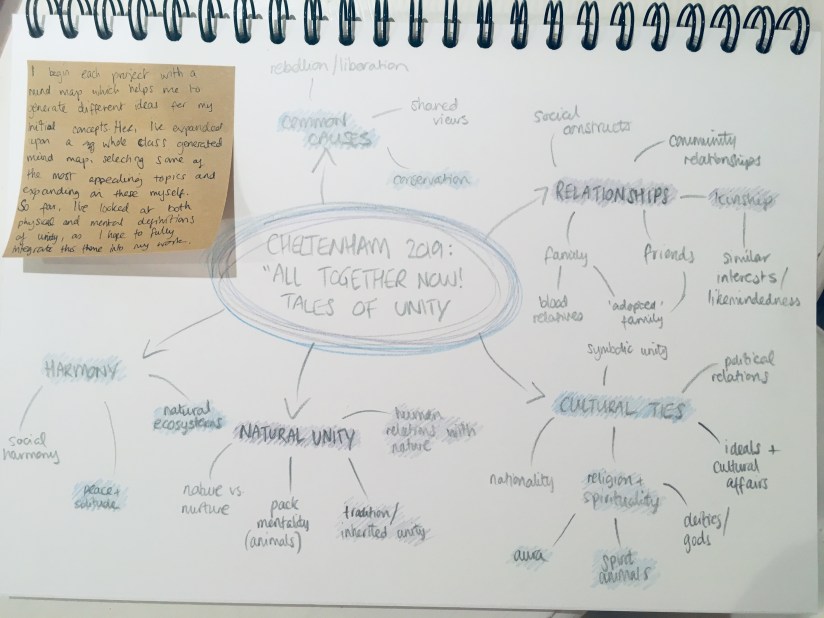 I begin each project with a
mind map which helps me to
generate different ideas for my
initial concepts. Here, I've expanded
upon a whole class generated
mind map, selecting some of
the most appealing topics and
expanding on these myself.
So far, I've looked at both
physical and mental definitions
of unity, as I hope to fully
integrate this theme into my work.
rebellion/liberation
COMMON
CAUSES
shared
views
conservation
social
constructs
community
relationships
RELATIONSHIPS
kinship
family
friends
similar
interests/
likemindedness
blood
relatives
'adopted'
family
CHELTENHAM 2019:
"ALL TOGETHER NOW!
TALES OF UNITY
HARMONY
social
harmony
peace +
solitude
natural
ecosystems
NATURAL UNITY
human
relations with
nature
nature vs
nurture
pack
mentality
(animals)
tradition/
inherited unity
symbolic unity
political
relations
CULTURAL TIES
nationality
religion +
spirituality
ideals +
cultural
affairs
deities/
gods
aura
spirit
animals